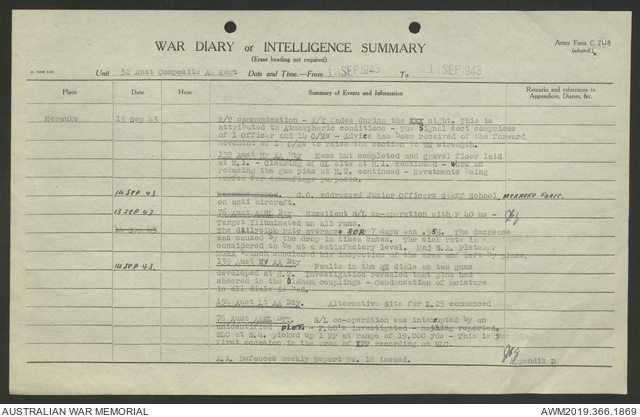 WAR DIARY or INTELLIGENCE SUMMARY
(Erase heading not required).
Army Form C. 2118
(adapted).
Unit 52 Aust Composite AA Regt Date and Time.—From SEP 1943 To SEP 1943
Place Date Hour Summary of Events and Information Remarks and references to
Appendices, Diaries, &c.
Merauke 13 Sep 43 R/T communication - R/T fades during the night. This is
attributed to Atmospheric conditions - The Signal sect comprises
of 1 Officer and 14 O/Rs - Advice has been received of the forward
movement of O/Rs to raise the section to WE strength.
139 Aust Hy AA Bty Mess hut completed and gravel floor laid
at H.1. - Clearing of GL site at H.1 continued - Work on
reducing the gun pits at H.2. continued - Revetments being
turfed for camouflage purposes.
14 SEP 43 C.O. addressed Junior Officers Staff School, MERAUKE FORCE.
on anti aircraft.
13 SEP 43 76 Aust AASL Bty Excellent S/L co-operation with P 40 ms -
Target illuminated on all runs.
The daily sick rate average FOR 7 days was .95%. The decrease
was caused by the drop in tinea cases. The sick rate is now
considered to be at a satisfactory level. Maj S.A. Fletcher
concluded his inspection of the area and left by plane.
14 SEP 43. 139 Aust Hy AA Bty Faults in the QE dials on two guns
developed at H.2. Investigation revealed that pins had
sheered in the Oldham couplings - Condensation of moisture
in all dials is bad.
154 Aust Lt AA Bty. Alternative Site for L.25 commenced
76 Aust AASL Bty. S/L co-operation was interrupted by an
unidentified - P.40's investigated - nothing reported.
SLC at S.4. picked up 1 FF at range of 19,000 yds - This is the
first occasion in the area of IFF recording on SLC.
A.A. Defences Weekly Report No. 18 issued. Appendix D
AUSTRALIAN WAR MEMORIAL AWM2019.366.1869